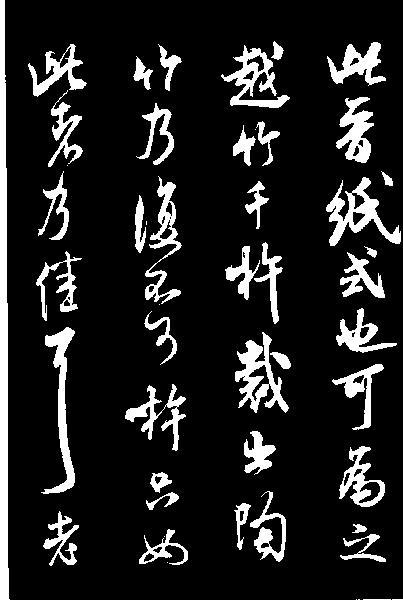 此晉紙式也可為之
越竹千杵裁出陶
竹乃復不可杵只如
此者乃佳耳老